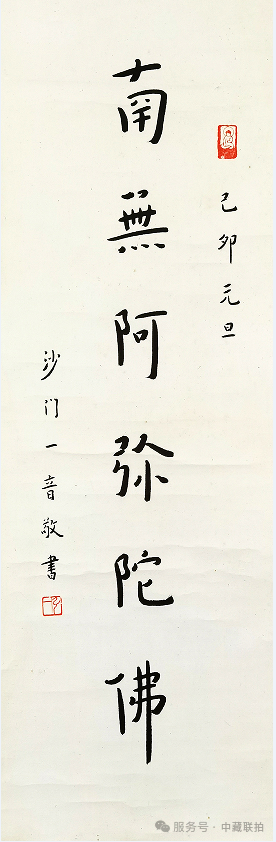 己卯元旦
南無阿弥陀佛
沙门一音敬書
服务号 · 中藏联拍